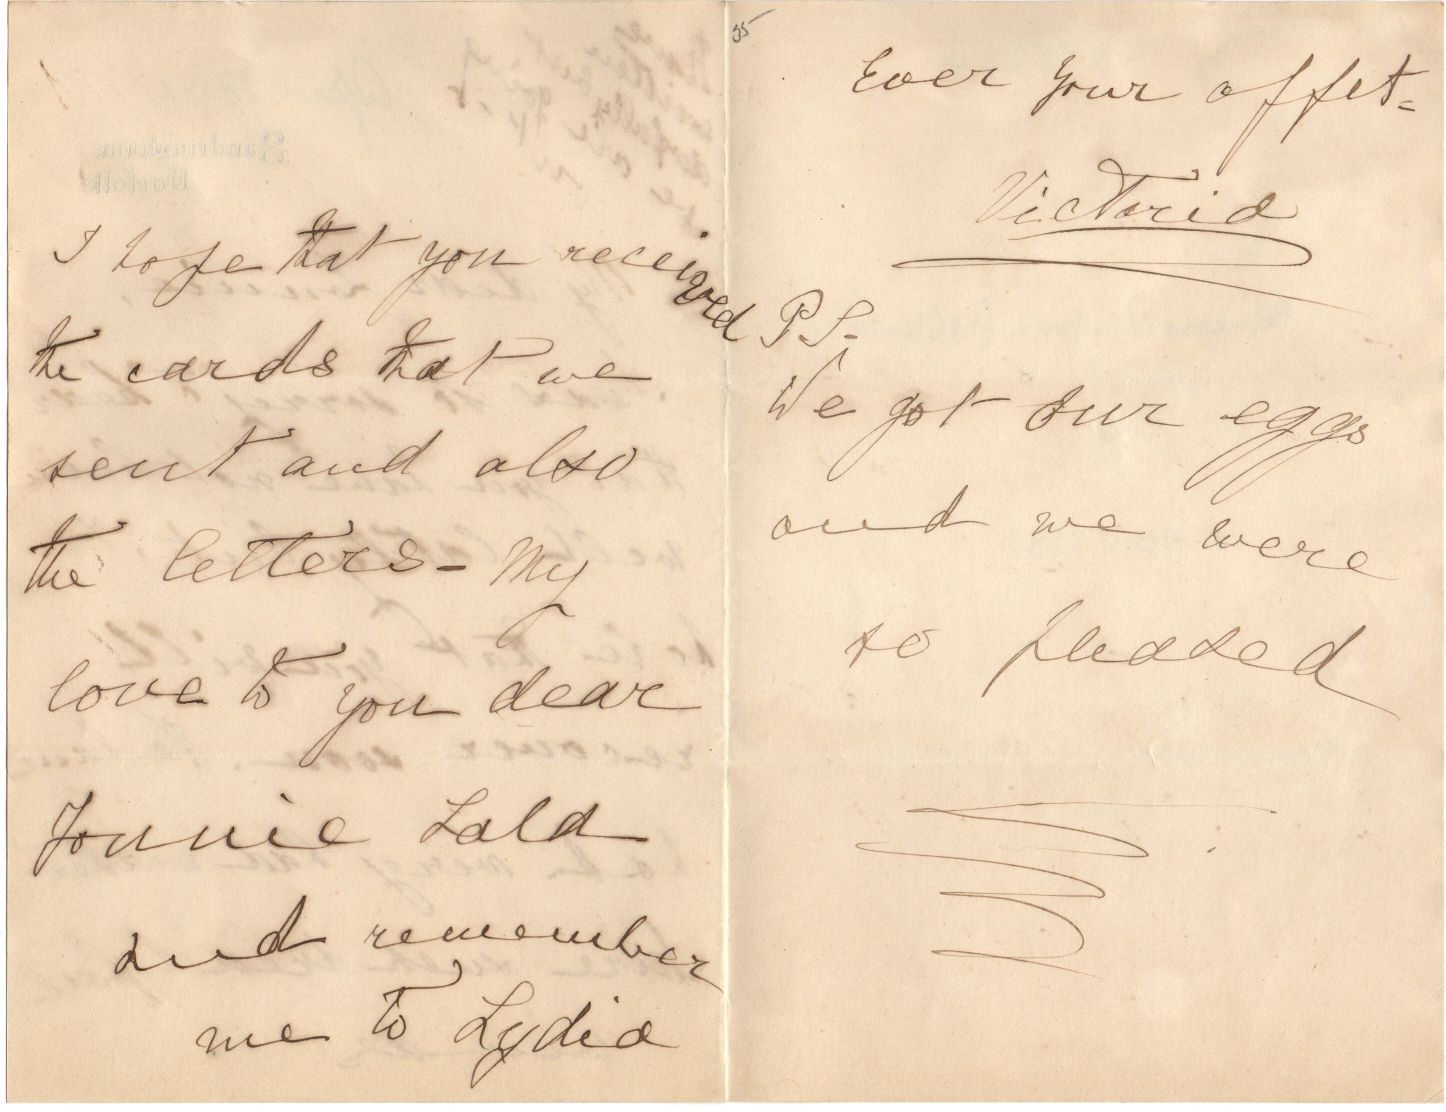 I hope that you received
the cards that we
sent and also
the letters - My
love to you dear
Lala
and remember
me to Lydia
35
Ever your affet-
Victoria
P.S.
We got our eggs
and we were
so pleased